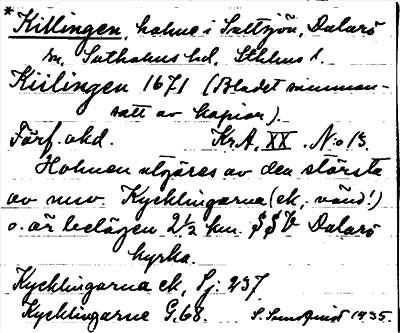 *Killingen, holme i Saltsjön, Dalarö
sn, Sotholms hd, Sthlms l.
Kiilingen 1671 (Bladet samman-
satt av kopior).
Förf. okd. Kr.A, XX. N:o 13.
Holmen utgöres av den största
av nuv. Kycklingarna (ek, vänd!)
o. är belägen 2½ km. SSV Dalarö
kyrka.
Kycklingarna ek, Sj: 237
Kycklingarne G.68. S. Sundqvist 1935.